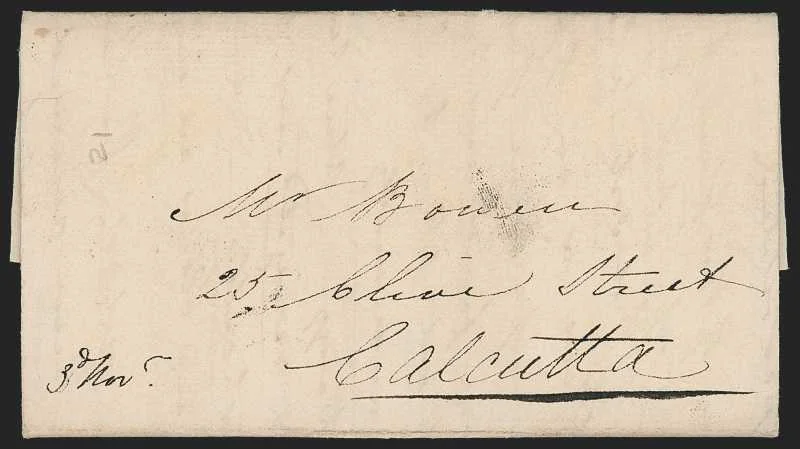 Mr Bowen
25 Clive Street
Calcutta
3d Novr.